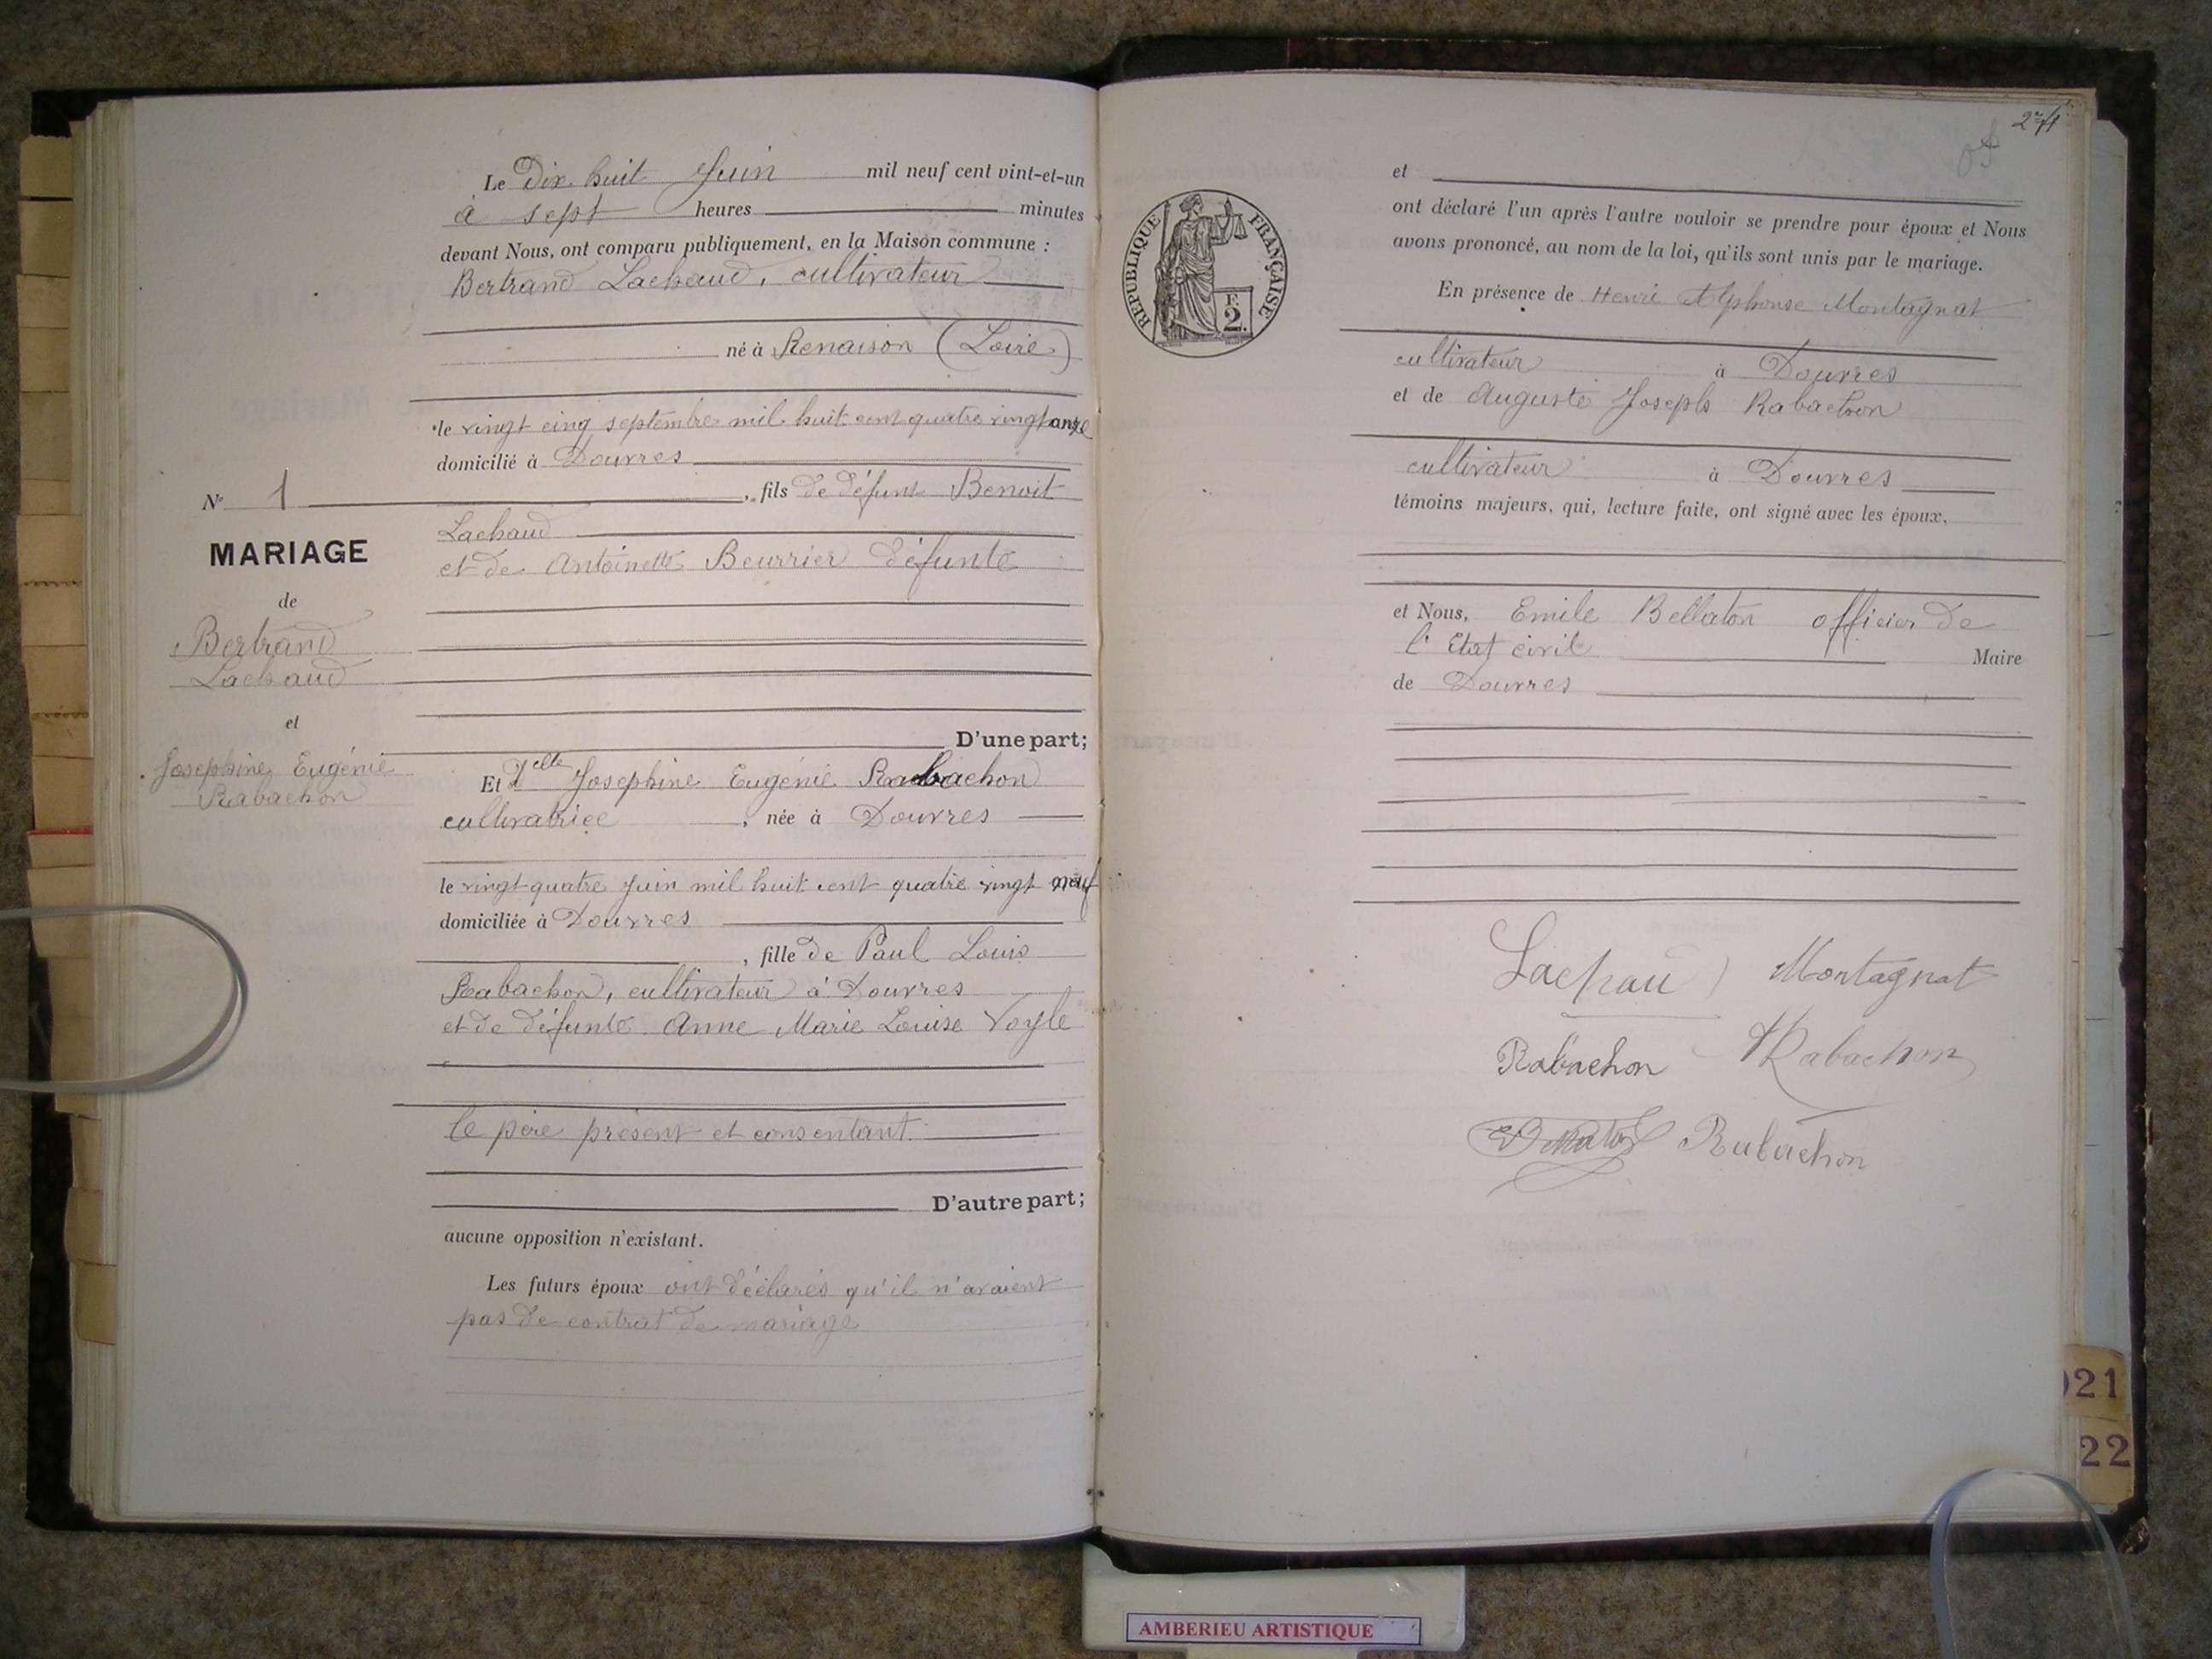 Le Dix huit Juin mil neuf cent vint-et-un
à sept heures minutes
devant Nous, ont comparu publiquement, en la Maison commune :
Bertrand Lachaud, cultivateur
né à Renaison (Loire)
le vingt cinq septembre mil huit cent quatre vingt onze
domicilié à Douvres
, fils de défunt Benoit
Lachaud
et de Antoinette Beurrier défunte
D'une part;
Et Delle Josephine Eugénie Rabachon
cultivatrice , née à Douvres
le vingt quatre Juin mil huit cent quatre vingt neuf
domiciliée à Douvres
, fille de Paul Louis
Rabachon, cultivateur à Douvres
et de défunte Anne Marie Louise Voyle
le père présent et consentant.
D'autre part;
aucune opposition n'existant.
Les futurs époux ont déclarés qu'il n'avaient
pas de contrat de mariage
N° 1
MARIAGE
de
Bertrand
Lachaud
et
Josephine Eugénie
Rabachon
RÉPUBLIQUE FRANÇAISE
F.
2.
et
ont déclaré l'un après l'autre vouloir se prendre pour époux et Nous
avons prononcé, au nom de la loi, qu'ils sont unis par le mariage.
En présence de Henri Alphonse Montagnat
cultivateur à Douvres
et de Auguste Joseph Rabachon
cultivateur à Douvres
témoins majeurs, qui, lecture faite, ont signé avec les époux,
et Nous, Emile Bellaton officier de
l'Etat civil Maire
de Douvres
Lachau Montagnat
Rabachon Rabachon
Rabachon
21
22
AMBERIEU ARTISTIQUE